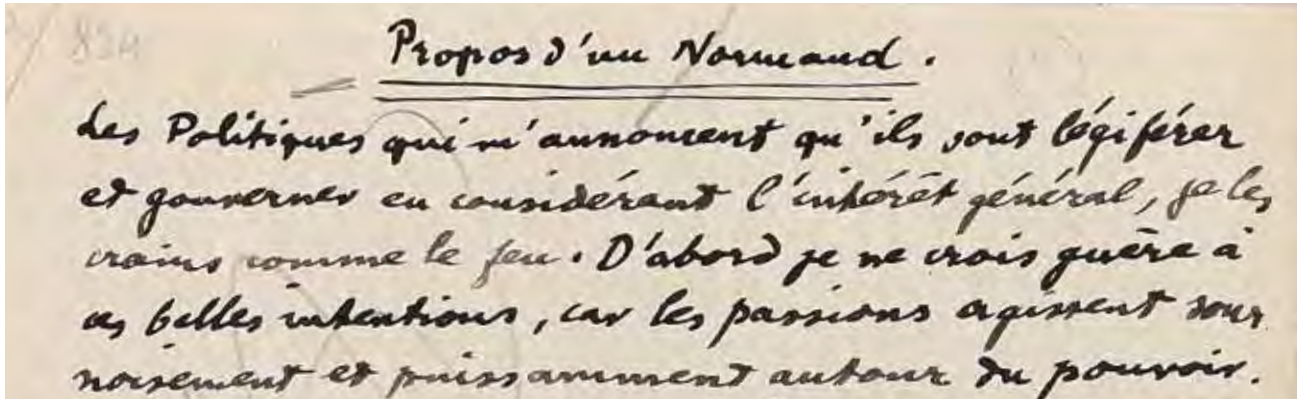 834
Propos d'un Normand.
Les Politiques qui m'annoncent qu'ils vont légiférer
et gouverner en considérant l'intérêt général, je les
crains comme le feu. D'abord je ne crois guère à
ces belles intentions, car les passions agissent sour
noisement et puissamment autour du pouvoir.